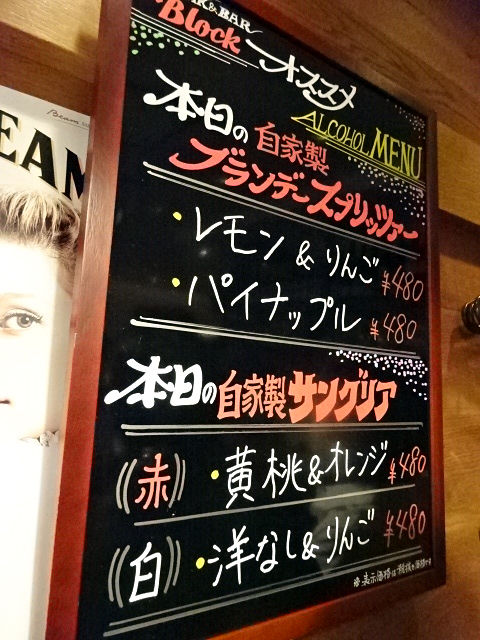 & BAR
Block
オススメ
ALCOHOL MENU
本日の自家製
ブランデースプリッツァー
・レモン & りんご ¥480
・パイナップル ¥480
本日の自家製サングリア
(赤) ・黄桃&オレンジ ¥480
(白) ・洋なし&りんご ¥480
※表示価格は税抜き価格です
Beam
EAM